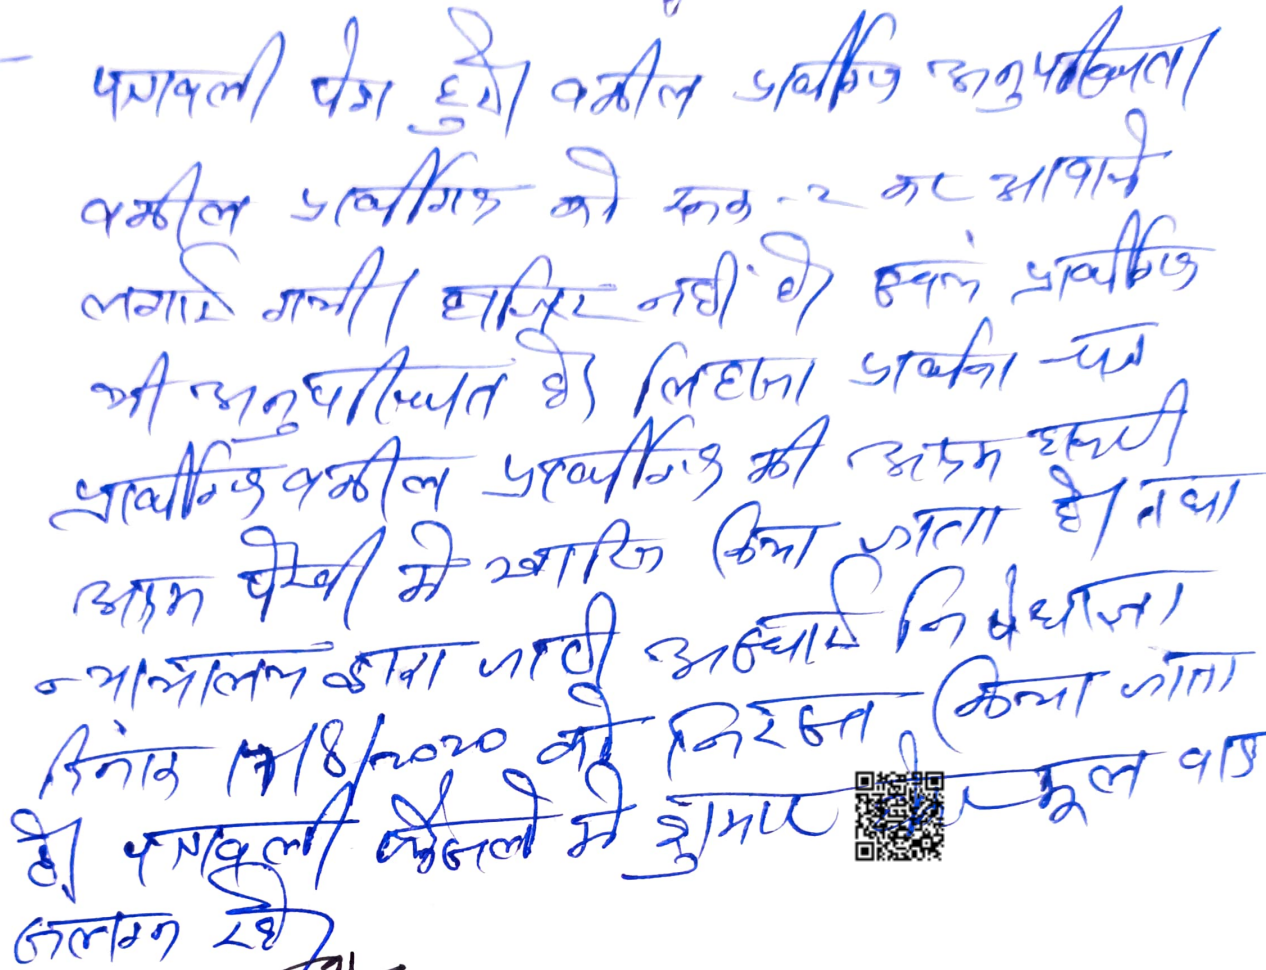 पत्रावली पेश हुयी। वकील प्रार्थीगण अनुपस्थित।
वकील प्रार्थीगण को रूक-२ कर आवाजे
लगाई गयी। हाजिर नहीं है। स्वयं प्रार्थीगण
भी अनुपस्थित है। लिहाजा प्रार्थना पत्र
प्रार्थीगण वकील प्रार्थीगण की अदम हाजरी
अदम पैरवी में खारिज किया जाता है। तथा
न्यायालय द्वारा जारी अस्थाई निषेधाज्ञा
दिनांक 17/8/2020 को निरस्त किया जाता
है। पत्रावली फैसले में शुमार होकर मूल वाद
संलग्न रहे।